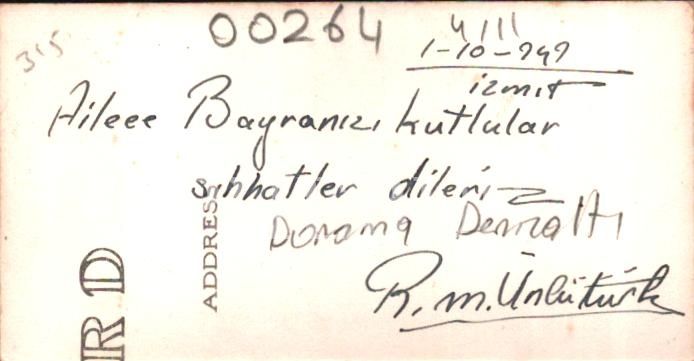 00264
315
4111
1-10-949
izmit
Ailece Bayramınızı kutlular
sıhhatler dileriz
Donama Denizaltı
R. m. Ünlütürk
ADDRESS
RD